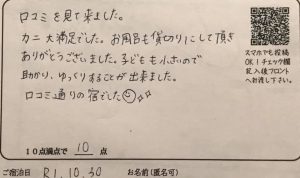 口コミを見て来ました。
カニ大満足でした。お風呂も貸切りにして頂き
ありがとうございました。子どもも小さいので
助かり、ゆっくりすることが出来ました。
口コミ通りの宿でした
スマホでも投稿
OK！チェック欄
記入後フロント
へお渡し下さい。
10点満点で 10 点
ご宿泊日 R1.10.30 お名前(匿名可)